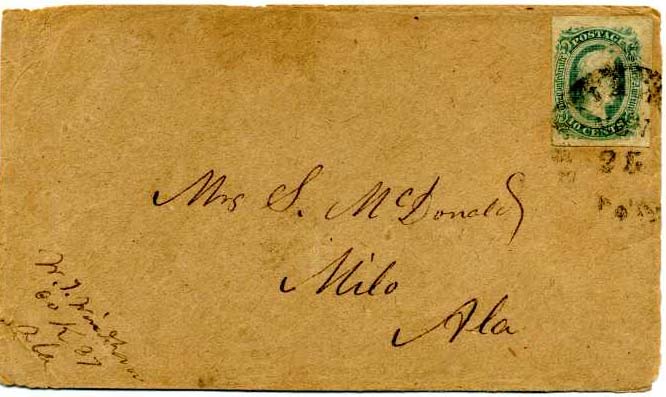 POSTAGE
10 CENTS
25
Mrs S. McDonald
Milo
Ala
W. J.
Co K 37
Ala